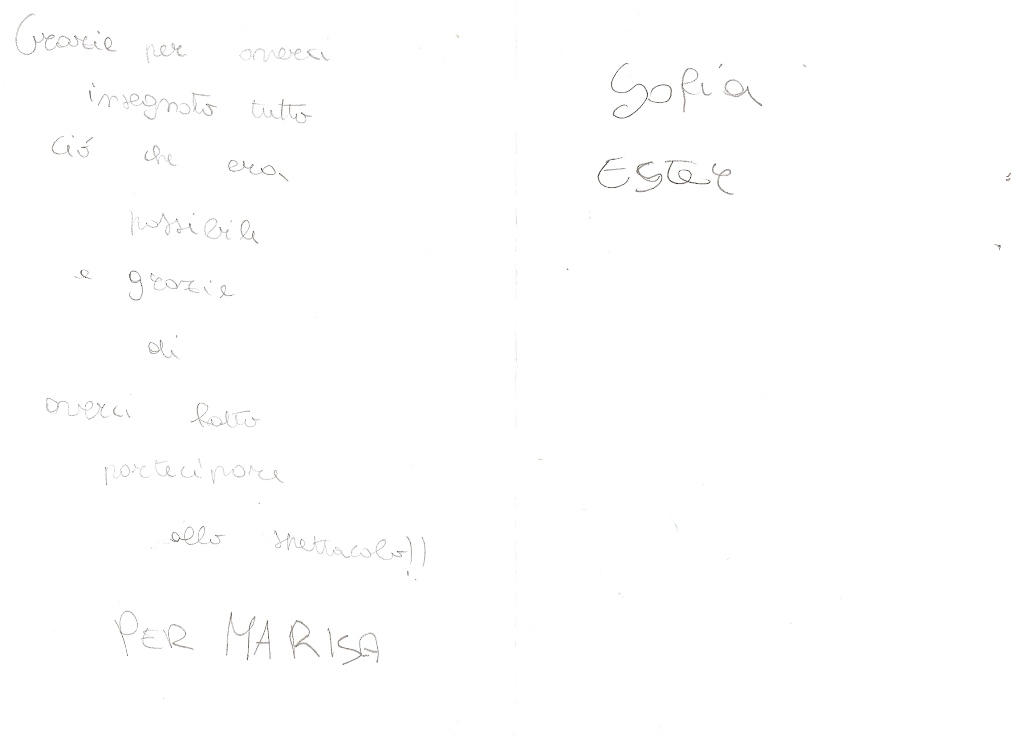 Grazie per averci
insegnato tutto
ció che era
possibile
e grazie
di
averci fatto
partecipare
allo spettacolo!!
PER MARISA
Sofia
ESTER